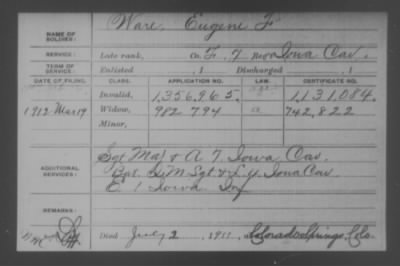 NAME OF SOLDIER: Ware, Eugene F.
SERVICE: Late rank, Co. F, 7 Reg't Iowa Cav.
TERM OF SERVICE: Enlisted , 1 Discharged , 1
DATE OF FILING. CLASS. APPLICATION NO. CERTIFICATE NO.
Invalid, 1,356,965. 1,131,084.
1912 Mar 19 Widow, 982 794 742,822
Minor,
ADDITIONAL SERVICES: Sgt Maj & A 7, Iowa Cav.
Sgt & L 4 Iowa Cav
E. 1 Iowa Inf
REMARKS:
Died July 2 1911, at Colorado Springs, Colo.